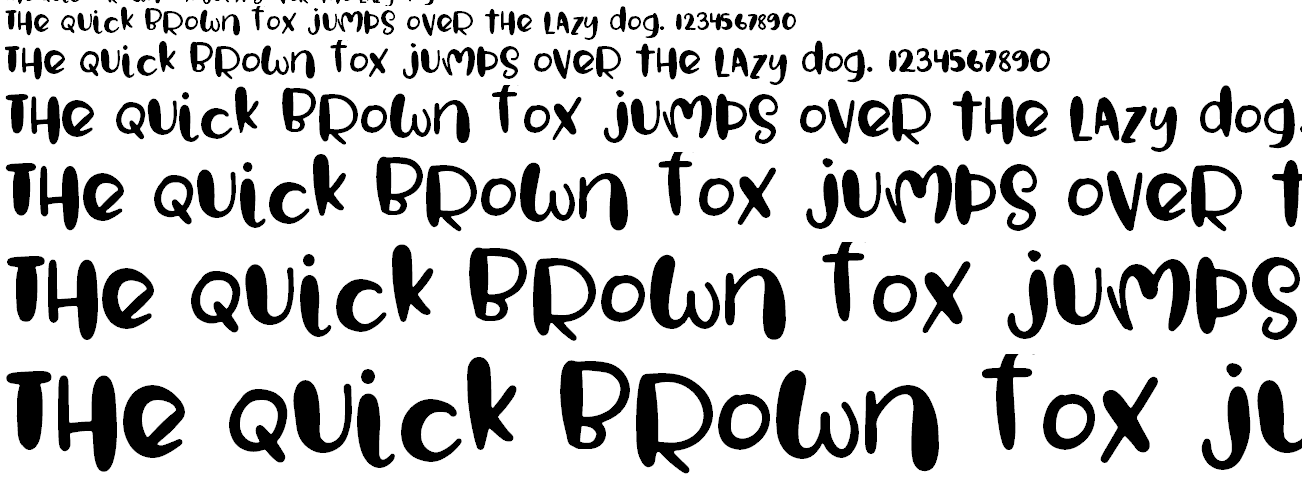 The quick brown fox jumps over the lazy dog. 1234567890
The quick brown fox jumps over the lazy dog. 1234567890
The quick brown fox jumps over the lazy dog.
The quick brown fox jumps over t
The quick brown fox jumps
The quick brown fox ju